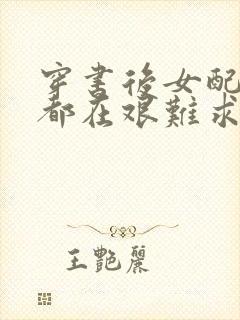 穿書後女配
都在艱難求
王艷麗